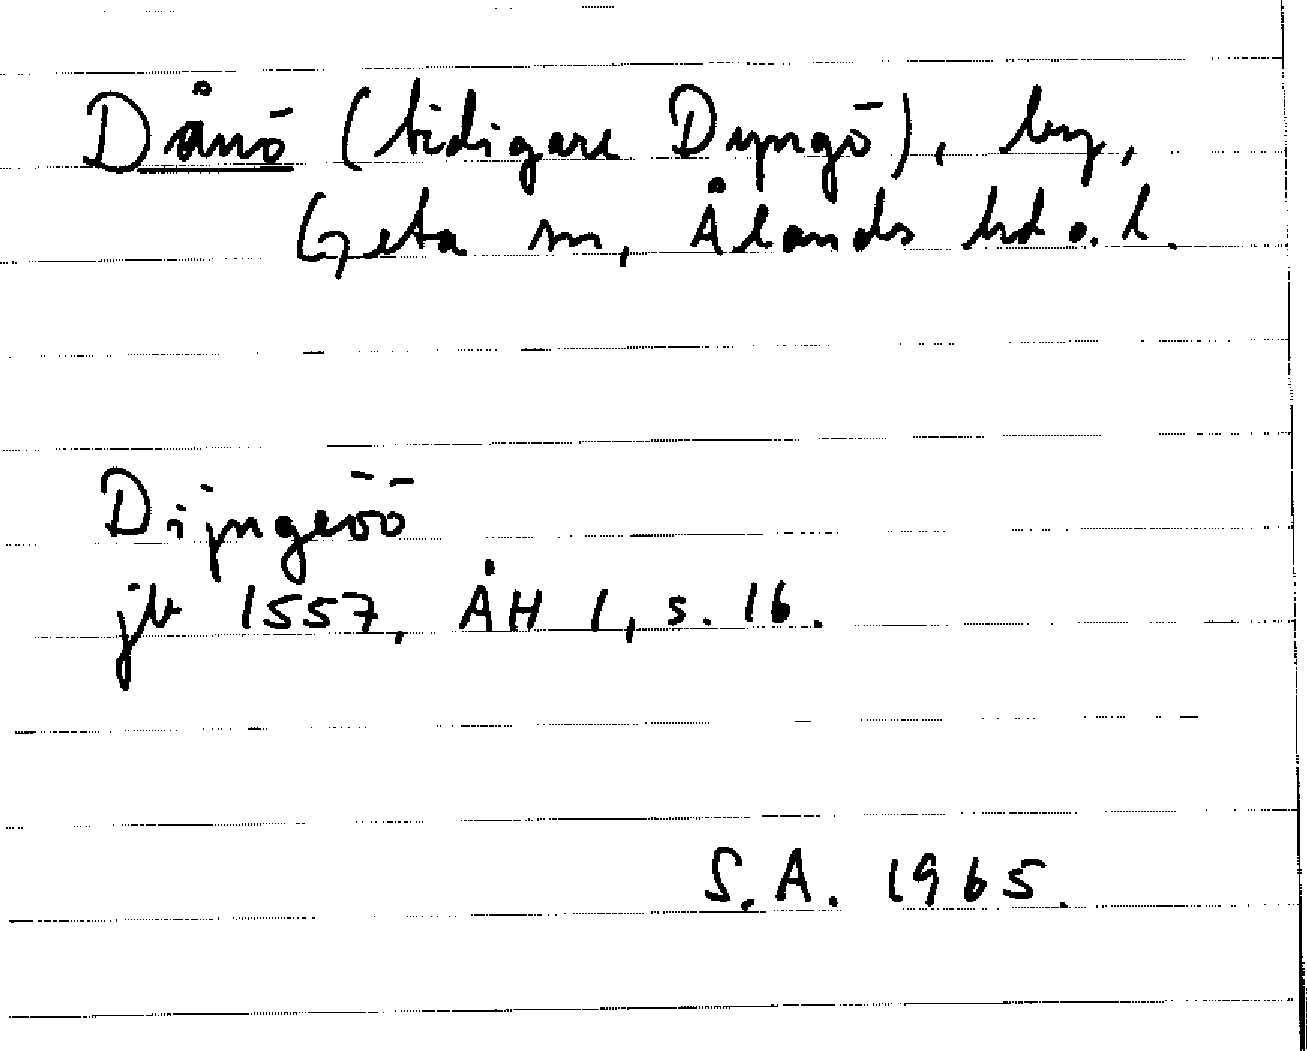 Dånö (tidigare Dyngö), by,
Geta sn, Ålands hd o. l.
Dijngeöö
jb 1557, ÅH 1, s. 16.
S.A. 1965.